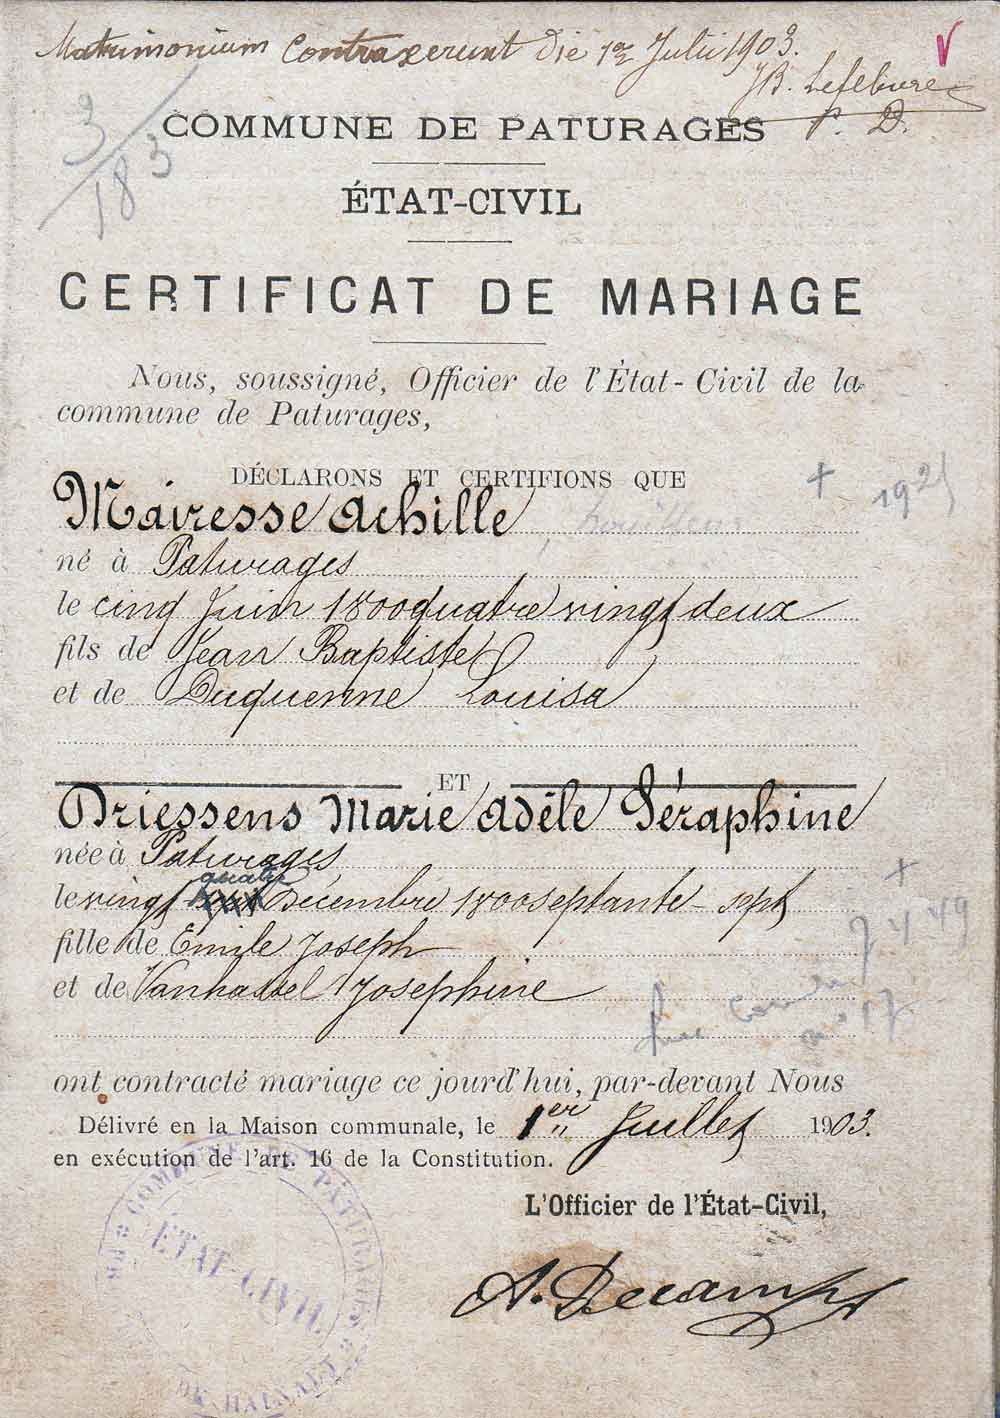 Matrimonium Contraxerunt die 1er Julii 1903.
JB. Lefebvre
P. D.
3/183
COMMUNE DE PATURAGES
ÉTAT-CIVIL
CERTIFICAT DE MARIAGE
Nous, soussigné, Officier de l'État-Civil de la
commune de Paturages,
DÉCLARONS ET CERTIFIONS QUE
Mairesse Achille
+ 1925
né à Paturages
le cinq Juin 1800quatre vingt deux
fils de Jean Baptiste
et de Duquenne Louisa
ET
Driessens Marie Adèle Séraphine
née à Paturages
quatre
le vingt sept Décembre 1800septante-sept
+
fille de Emile Joseph
7 4 49
et de Vanhassel Josephine
n° 17.
ont contracté mariage ce jourd'hui, par-devant Nous
Délivré en la Maison communale, le 1er Juillet 1903.
en exécution de l'art. 16 de la Constitution.
L'Officier de l'État-Civil,
A. Decamps
COMMUNE DE PATURAGES
ÉTAT-CIVIL
HAINAUT